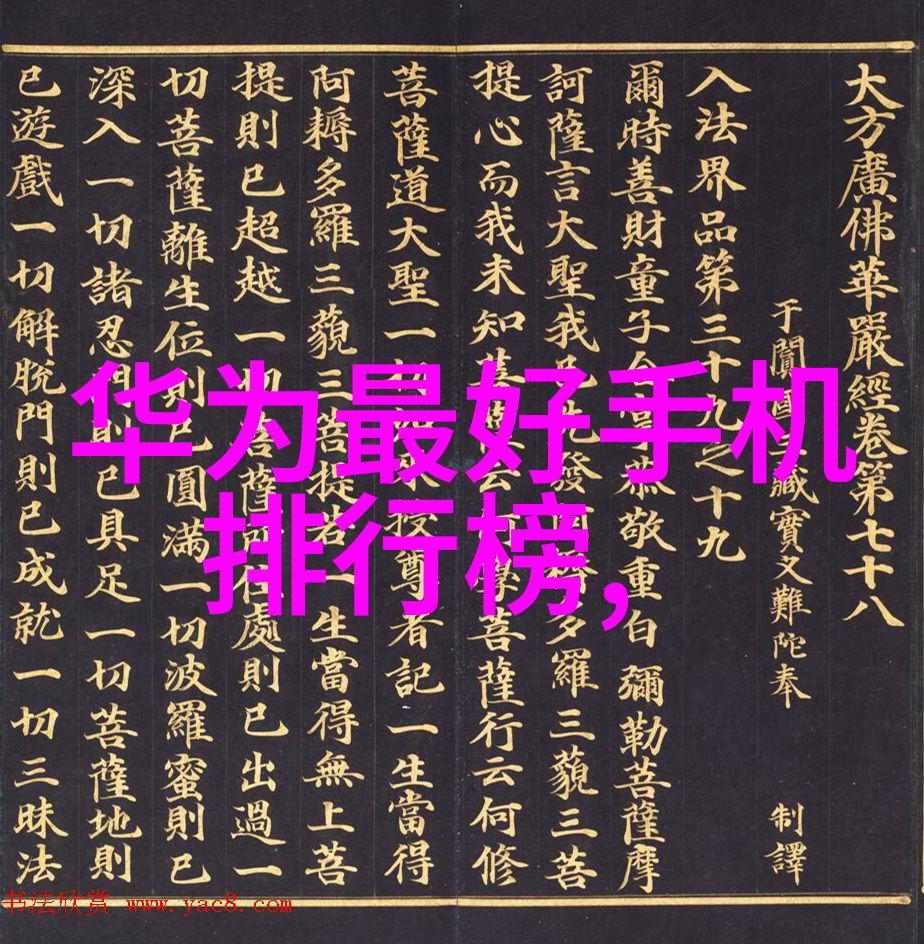 大方廣佛華嚴經卷第七十八
于闐國藏實叉難陀奉 制譯
入法界品第三十九之十九
爾時善財童子合恭敬重白彌勒菩薩摩
訶薩言大聖我已先發多羅三藐三菩
提心而我未知菩薩云何學菩薩行云何修
菩薩道大聖一授尊者記一生當得
阿耨多羅三藐三菩提若一生當得無上菩
提則已超越一切菩薩所住處則已出過一
切菩薩離生位則已圓滿一切波羅蜜則已
深入一切諸忍門則已具足一切菩薩地則
已遊戲一切解脫門則已成就一切三昧法
华为最好手机
排行榜,
书法欣赏 www.yac8.com